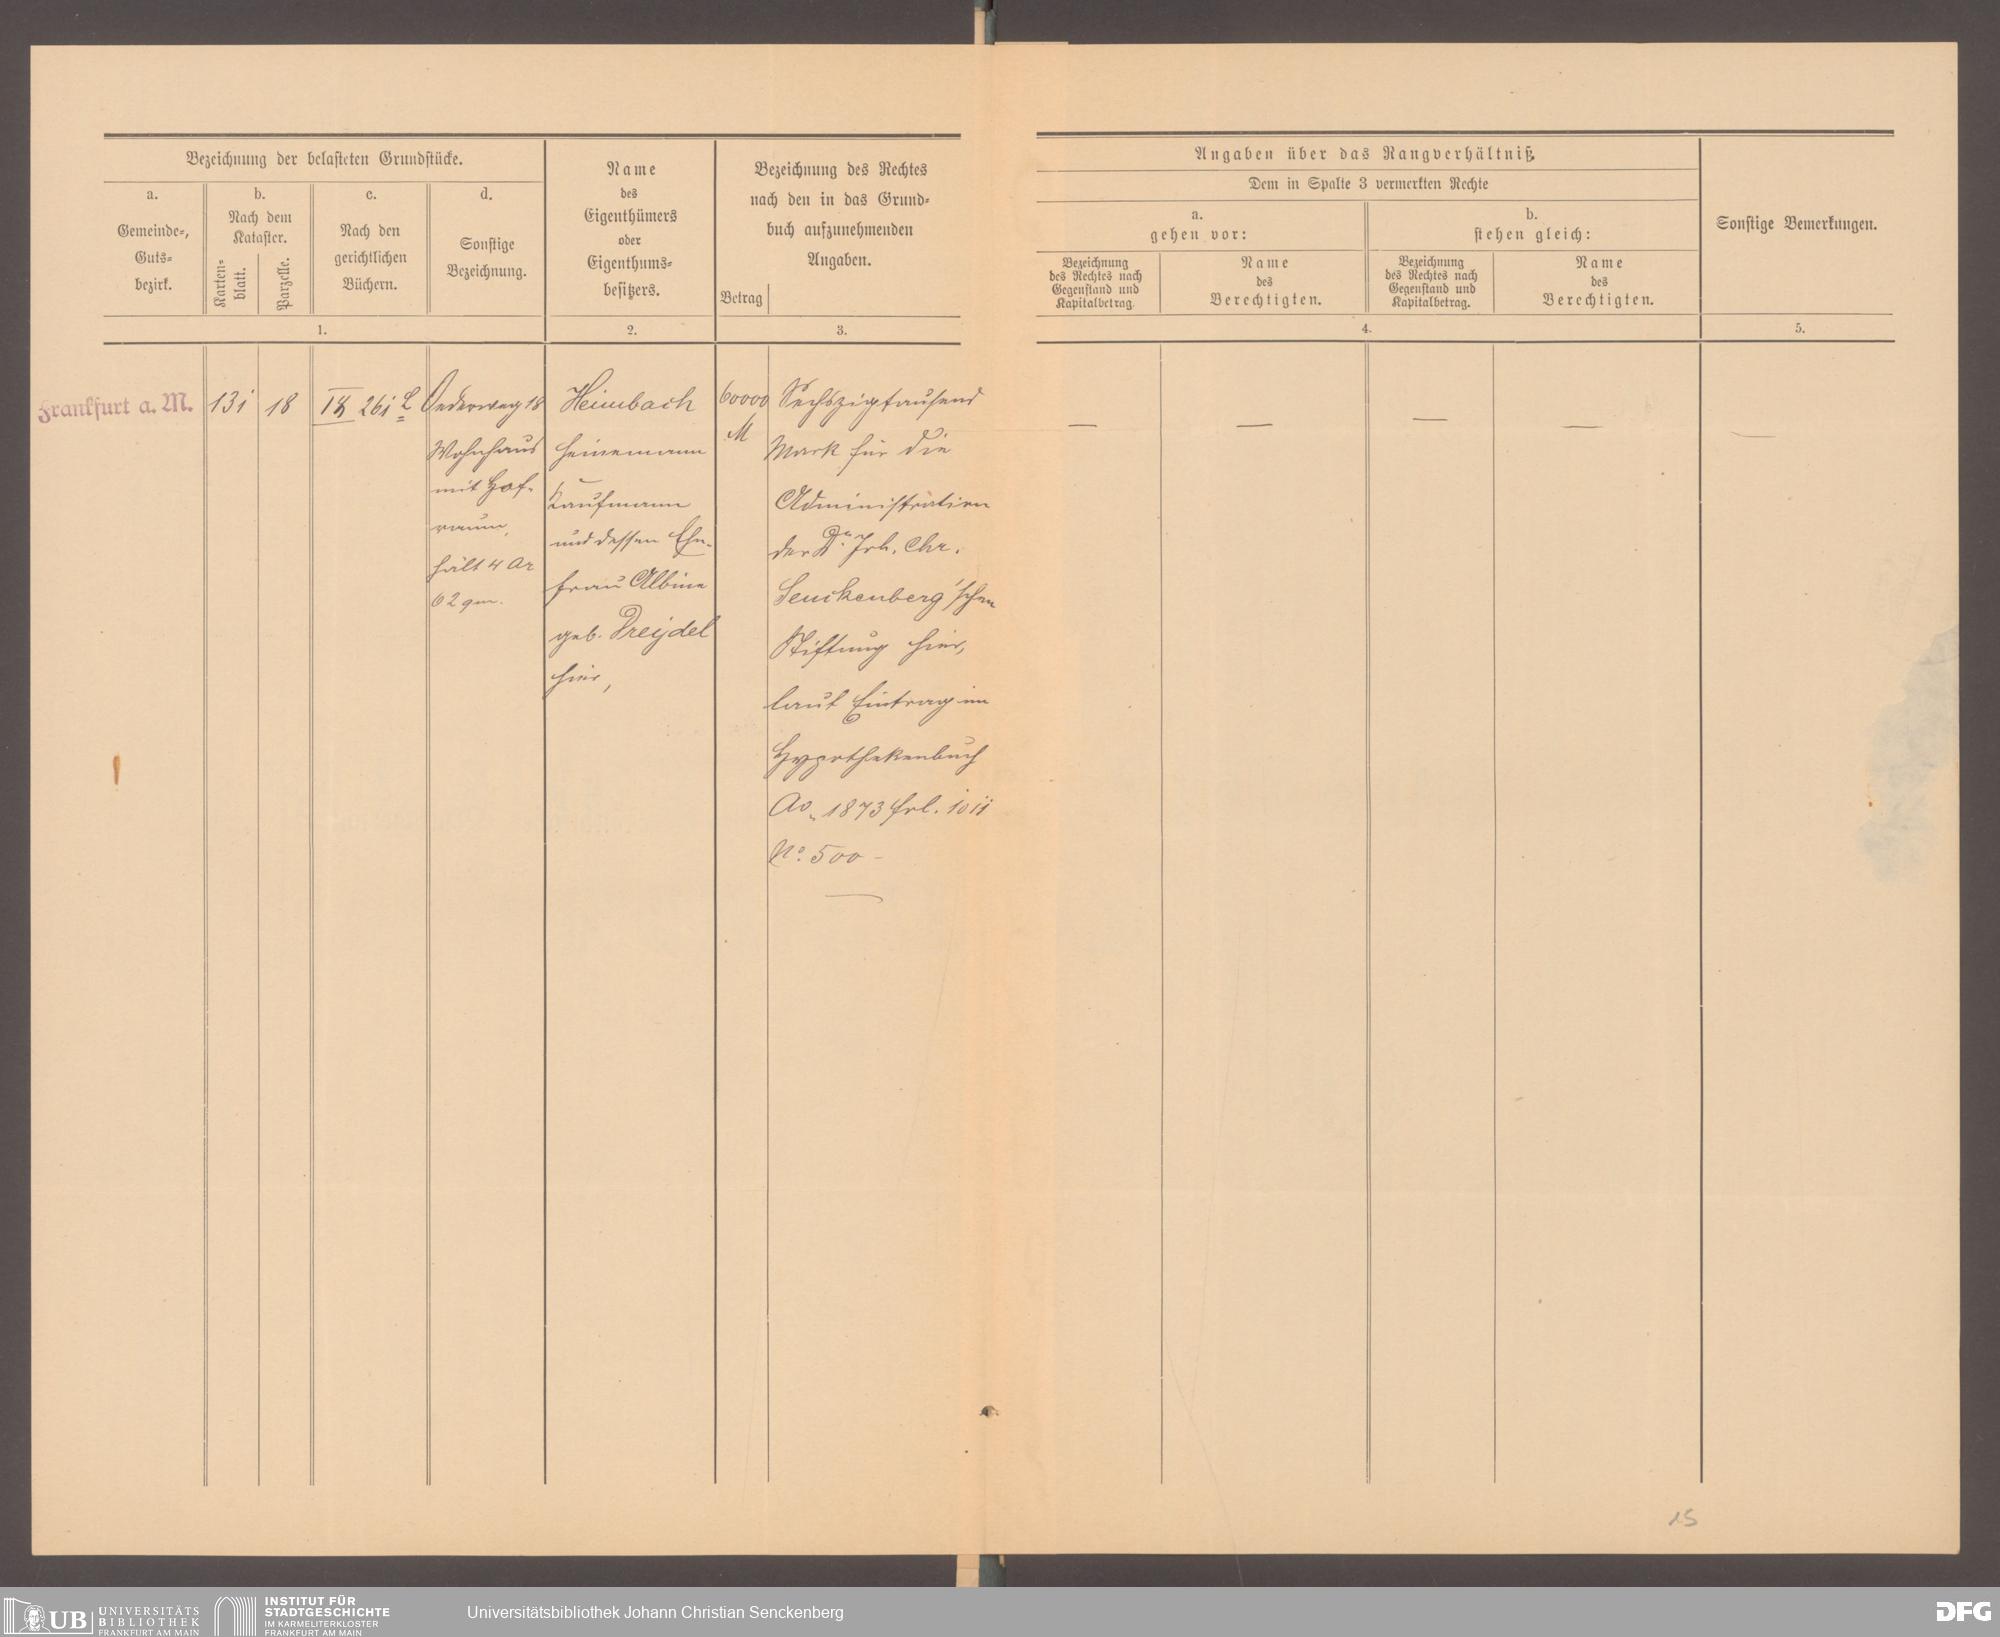 Bezeichnung der belasteten Grundstücke.
a.
Gemeinde-,
Guts-
bezirk.
b.
Nach dem
Kataster.
Karten-
blatt.
Parzelle.
c.
Nach den
gerichtlichen
Büchern.
d.
Sonstige
Bezeichnung.
1.
Name
des
Eigenthümers
oder
Eigenthums-
besitzers.
2.
Bezeichnung des Rechtes
nach den in das Grund-
buch aufzunehmenden
Angaben.
Betrag
3.
Angaben über das Rangverhältniß.
Dem in Spalte 3 vermerkten Rechte
a.
gehen vor:
Bezeichnung
des Rechtes nach
Gegenstand und
Kapitalbetrag.
Name
des
Berechtigten.
b.
stehen gleich:
Bezeichnung
des Rechtes nach
Gegenstand und
Kapitalbetrag.
Name
des
Berechtigten.
4.
Sonstige Bemerkungen.
5.
Frankfurt a. M.
131
18
261
Oederweg 18
Wohnhaus
mit Hof-
raum,
hält 4 Ar
62 qm.
Heimbach
Heinemann
Kaufmann
und dessen Ehe-
frau Albine
geb. Dreydel
hier,
60000
M
Sechszigtausend
Mark für die
Administration
der Dr. Joh. Chr.
Senckenberg'schen
Stiftung hier,
laut Eintrag im
Hypothekenbuch
Ao. 1873 fol. 1011
No. 500 –
—
—
—
—
—
15
UB
UNIVERSITÄTS
BIBLIOTHEK
FRANKFURT AM MAIN
INSTITUT FÜR
STADTGESCHICHTE
IM KARMELITERKLOSTER
FRANKFURT AM MAIN
Universitätsbibliothek Johann Christian Senckenberg
DFG